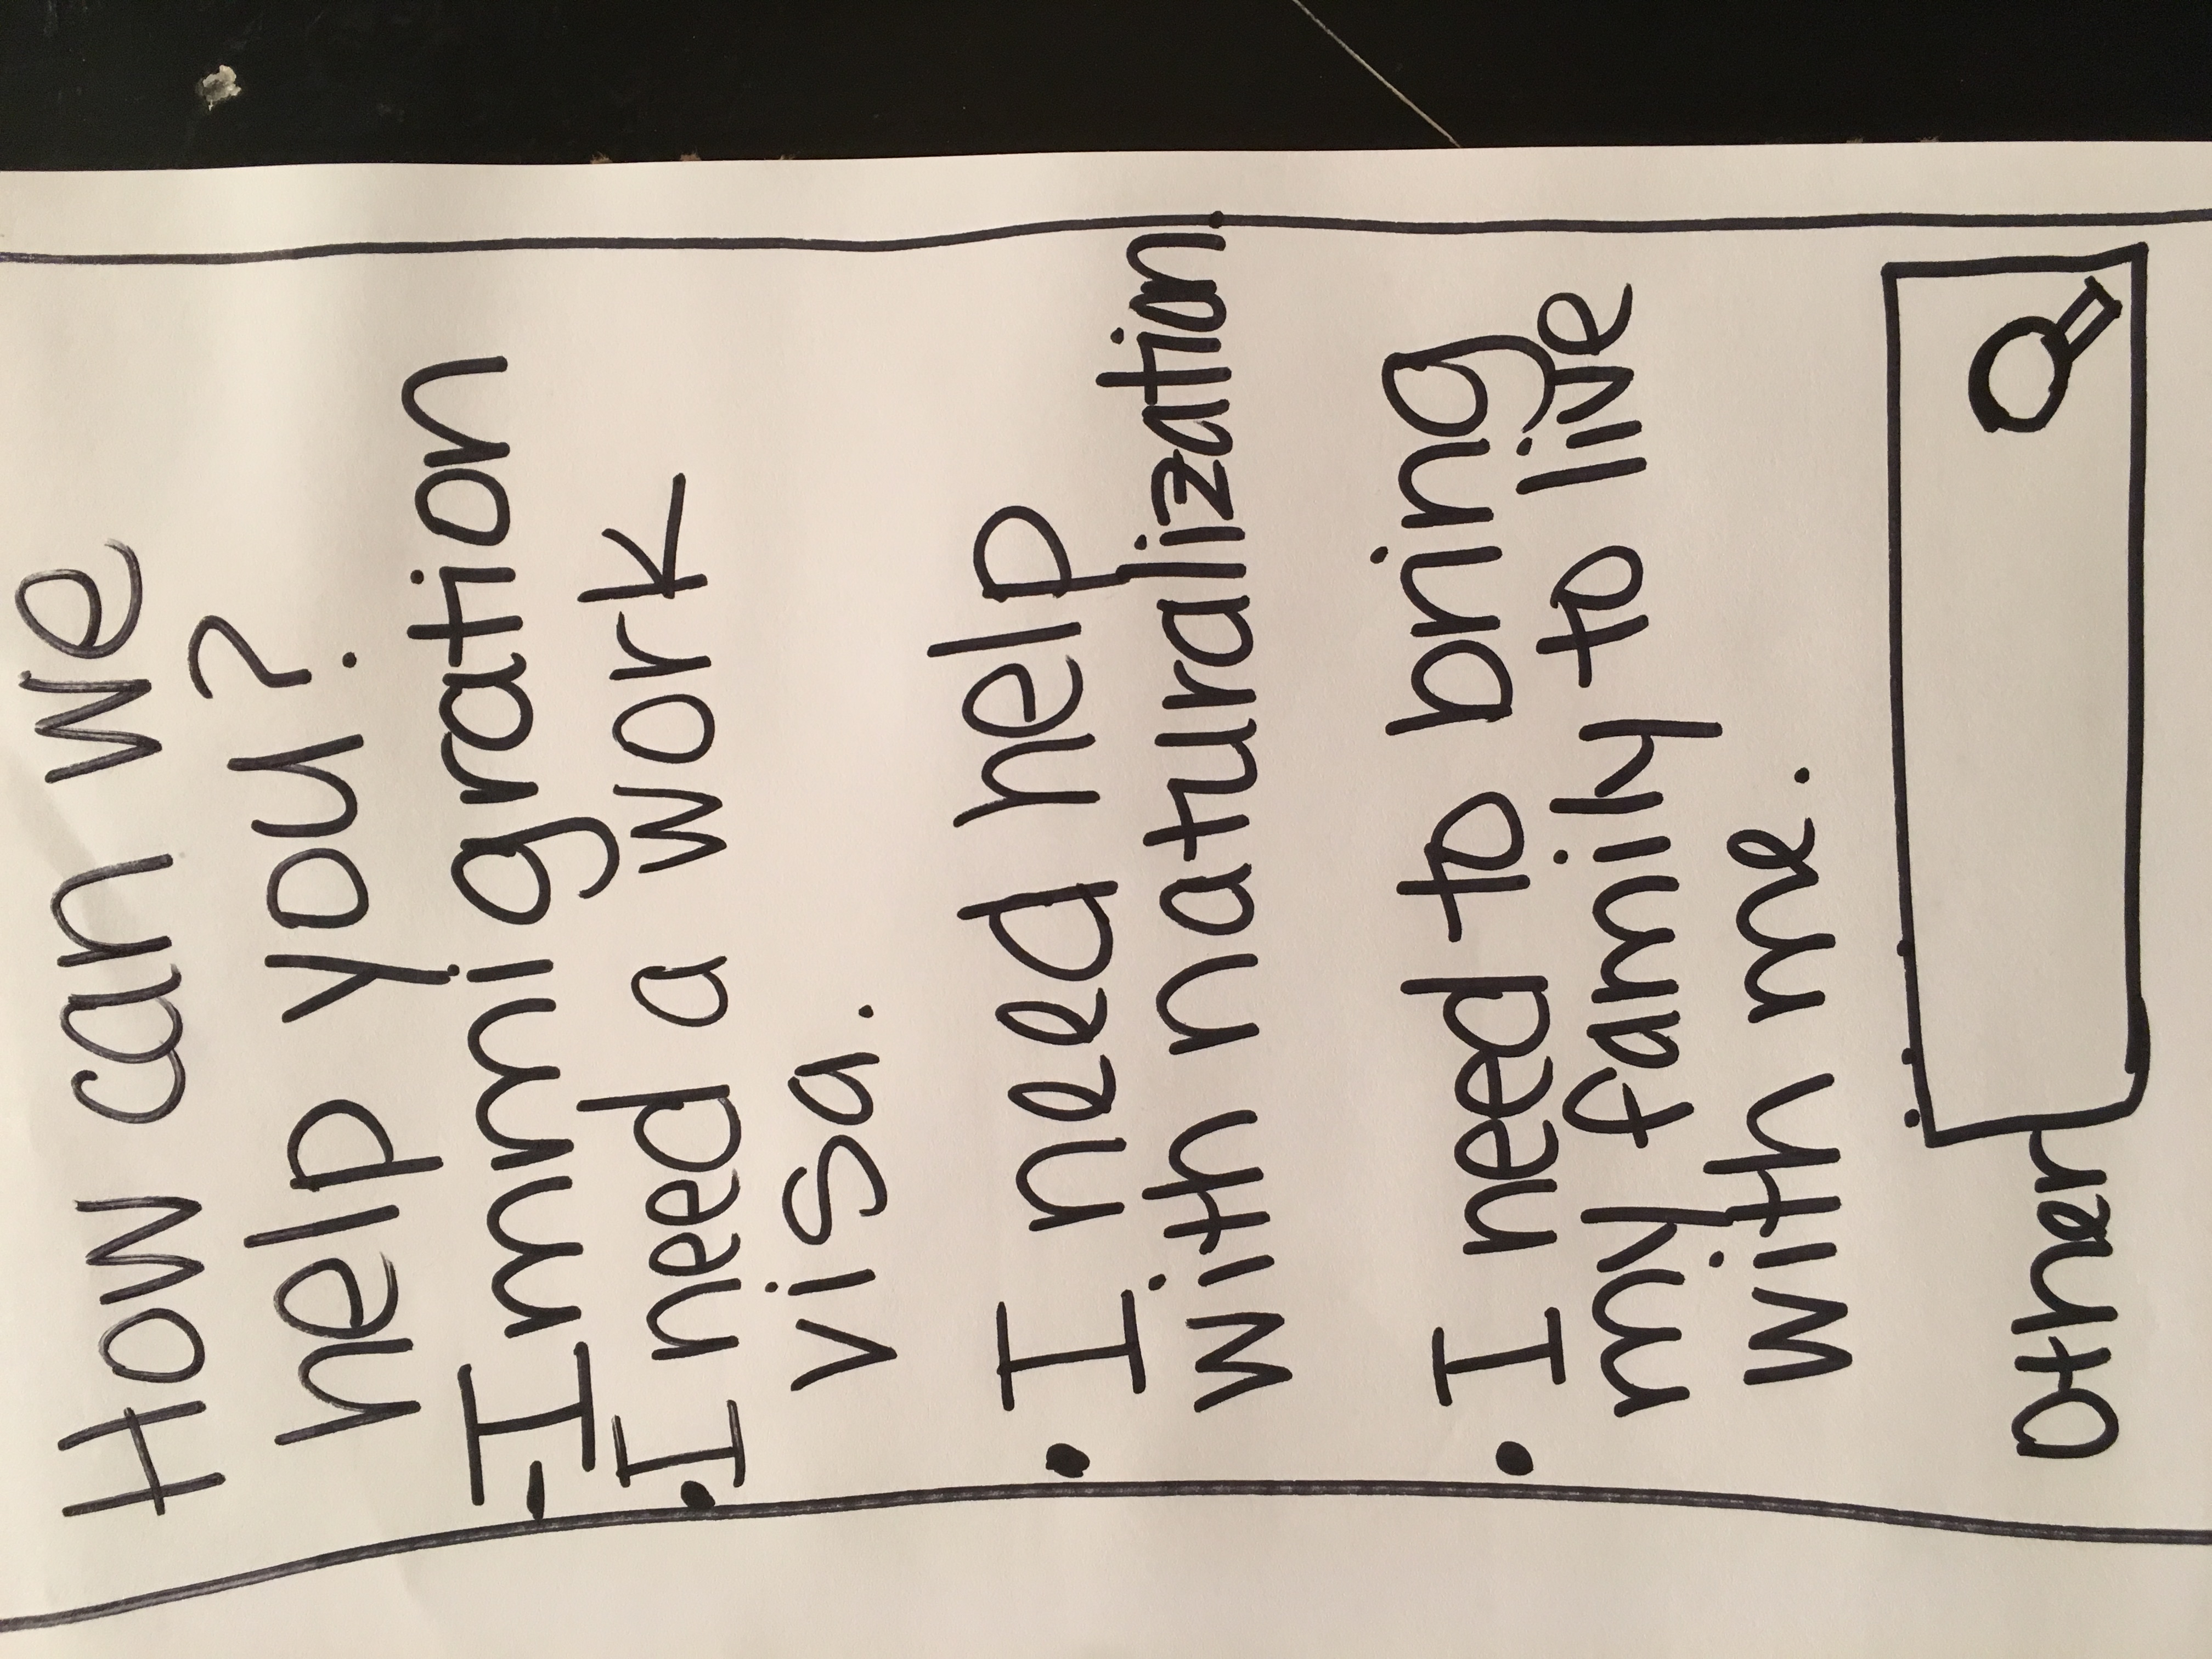 How can we
help you?
- Immigration
• I need a work
visa.
• I need help
with naturalization.
• I need to bring
my family to live
with me.
Other